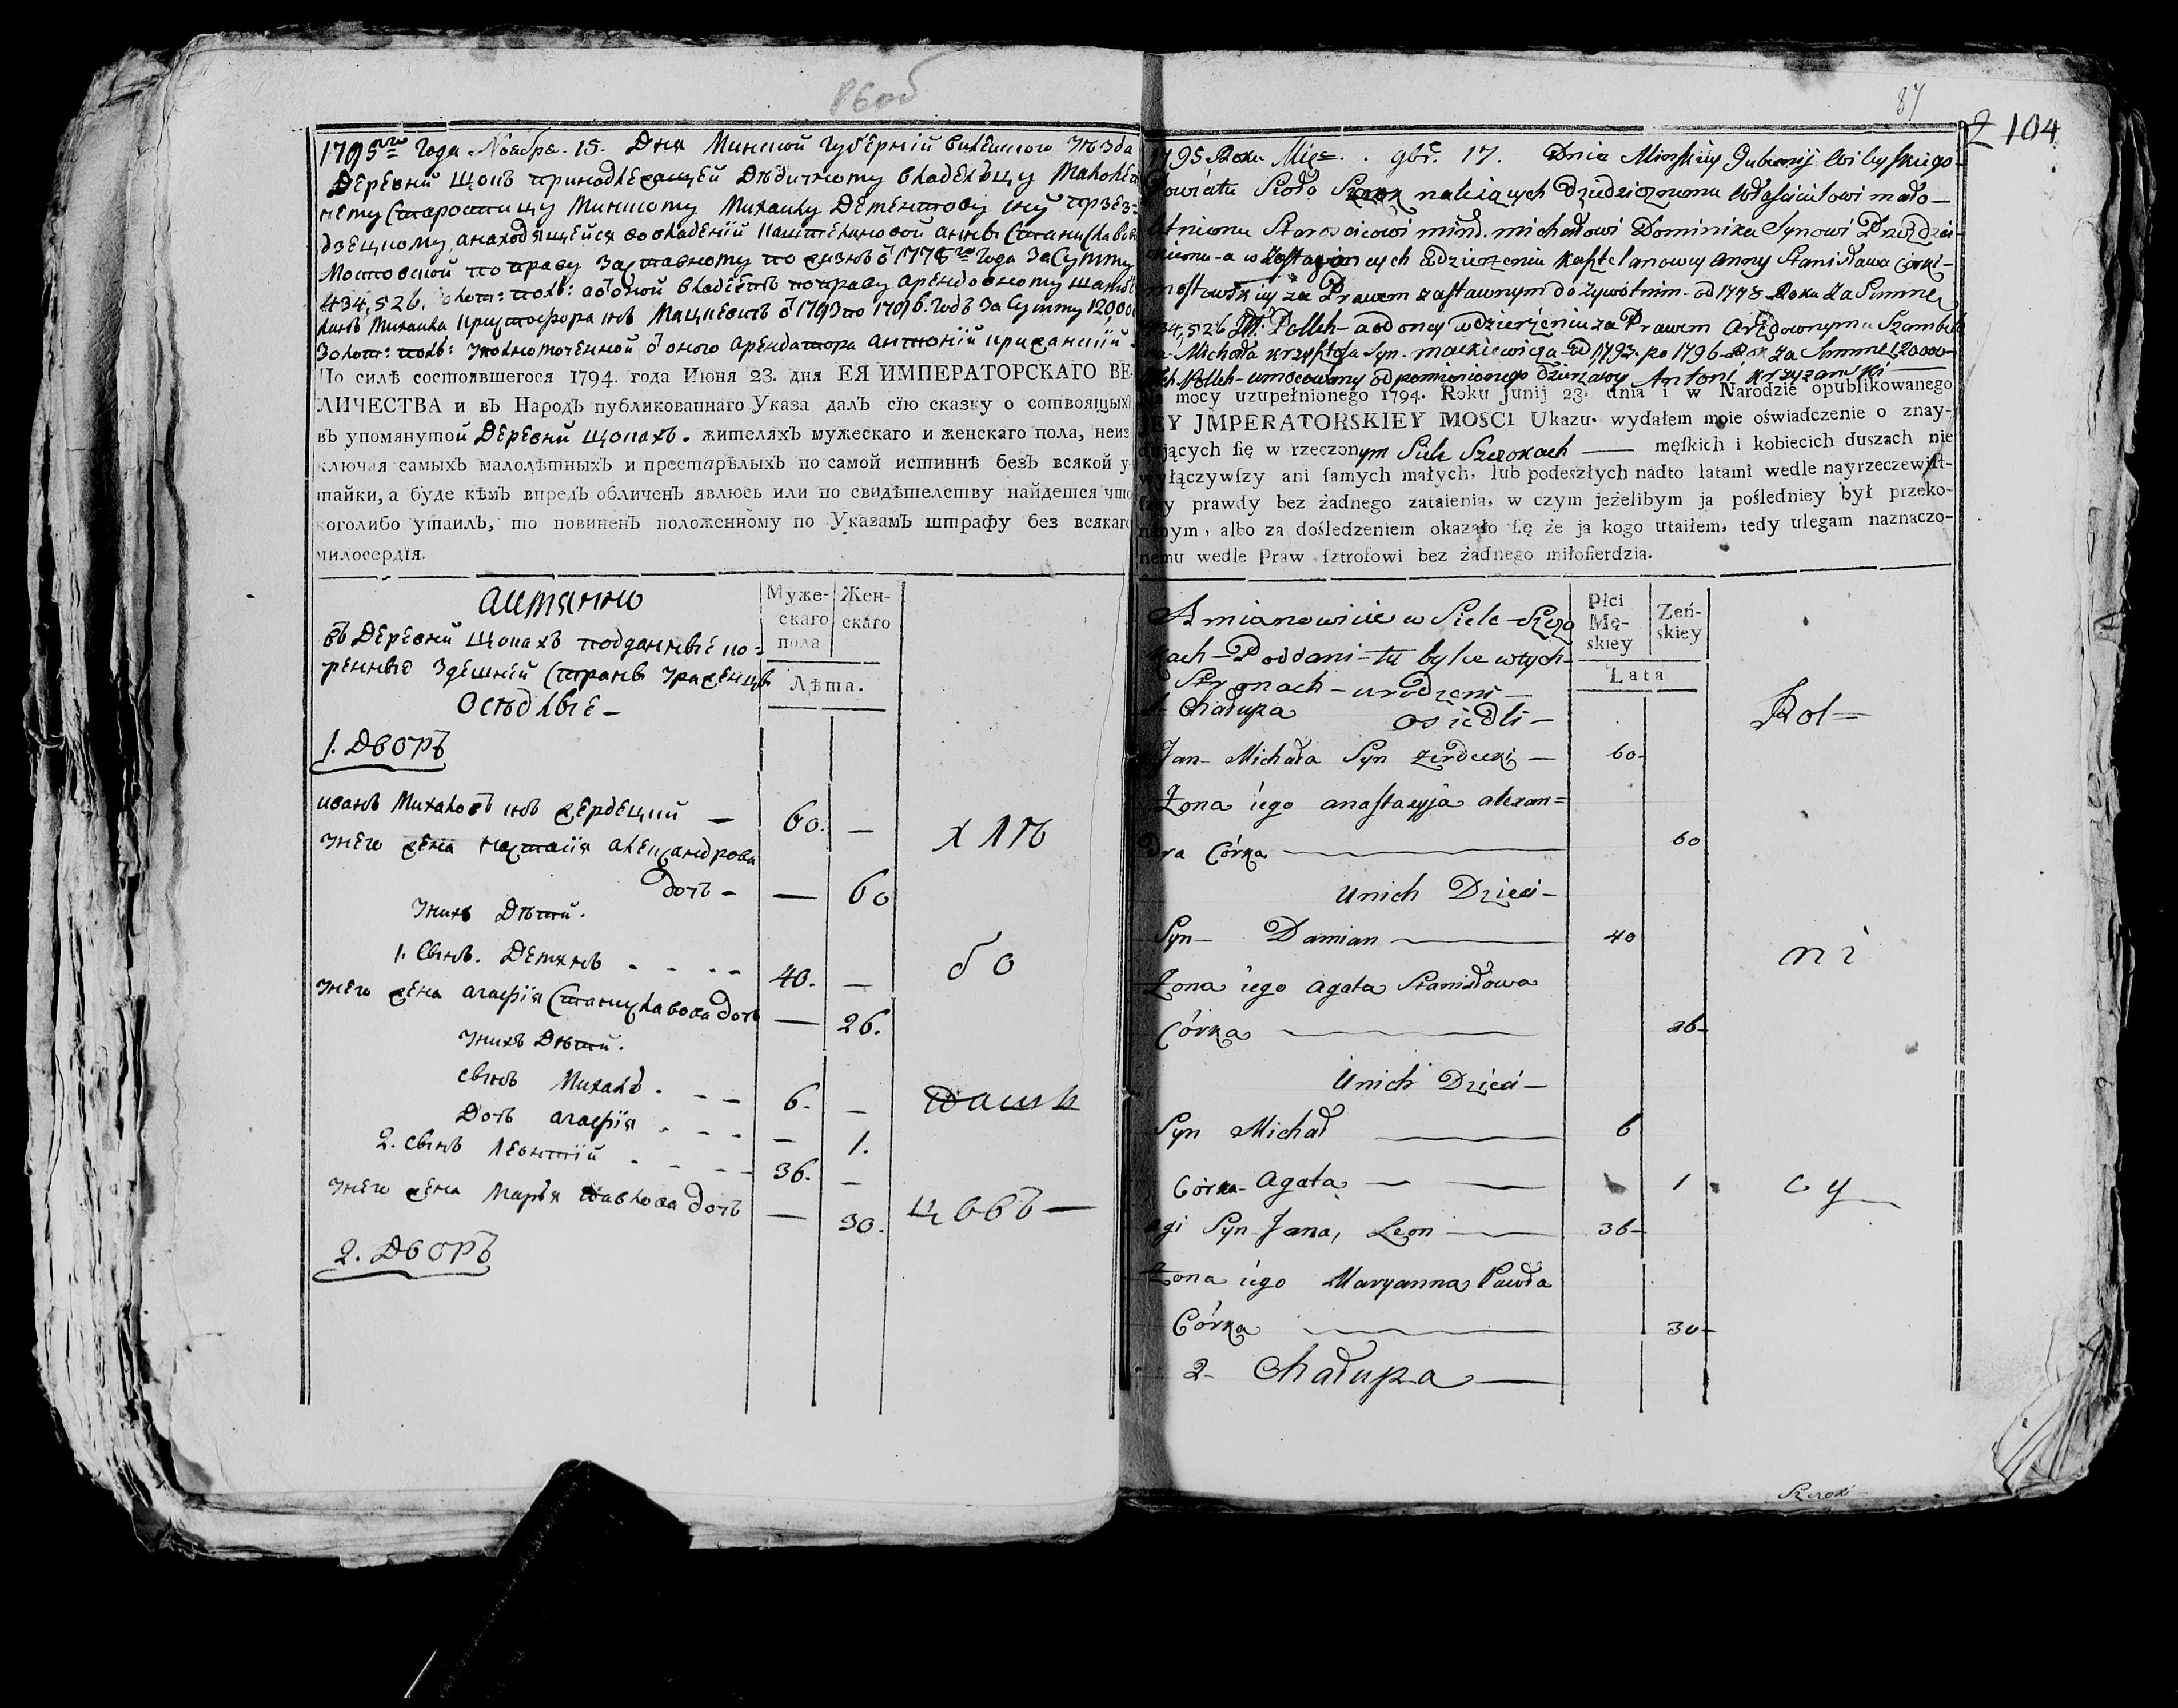 86об
1795го Года Ноября 15. Дня Минской Губерний Вилейского Уезда
Деревни Щокъ принадлежащей Дѣдичному владелцу Малолѣт
нему Старостицу Минскому Михаилу Дементову сну Прзез-
дзецкому, а находящейся во владений Каштеляновой Анны Станиславов
Мостовской по праву заставному по жизнь о 1778го Года за Сумму
434,526. золот: полс: а в оной владеетъ по праву арендовному шамбе
ланъ Михайла Криштофора снъ Мацкевичъ о 1793 по 1796. Годъ за Сумму 120,000
Золот: полс: уполномоченной о оного арендатора Антоний Крижанский
По силѣ состоявшегося 1794. года Июня 23. дня ЕЯ ИМПЕРАТОРСКАГО ВЕ-
ЛИЧЕСТВА и въ Народъ публикованнаго Указа далъ сію сказку о сотвоящыхъ
въ упомянутой Деревни Щокахъ. жителяхъ мужескаго и женскаго пола, неиз
ключая самыхъ малолѣтныхъ и престарѣлыхъ по самой истиннѣ безъ всякой у
тайки, а буде кѣмъ впредъ обличенъ явлюсь или по свидѣтелству найдется что
коголибо утаилъ, то повиненъ положенному по Указамъ штрафу без всякаго
милосердія.
Муже-
скаго
пола
Жен-
скаго
Лѣта.
Аимянно
въ Деревни Щокахъ подданные ко-
ренные здешней Страны уроженцы
Оседлые -
1. Дворъ
Иванъ Михаловъ снъ Жердецкий - 60. -
У него жена Настасия Александрова
дочъ - - 60
У нихъ Дѣти.
1. Сынъ. Демянъ 40. -
У него жена Агафия Станиславова дочъ - 26.
У нихъ Дѣти.
сынъ Михалъ. 6. -
Дочъ Агафия - 1.
2. сынъ Леонтий 36. -
У него жена Марья Павлова дочъ - 30.
2. Дворъ
хлѣ
бо
паш
цовъ
87
2 104
1795 Roku Mięs. 9br. 17. Dnia Minskiey Gubernij Wileyskiego
Powiátu Sioło Szczok należących Dziedzicznemu Właścicielowi mało-
letniemu Starościcowi mińs. Michałowi Dominika Synowi Przeździe-
ckiemu - a w Zostaiących w dzierżeniu Kasztelanowey Anny Stanisława Córki-
mostowskiey za Prawem zastawnym dożywotnim - od 1778 Roku za Summe
434,526 Zł: Polch - a od oney w dzierżeniu za Prawem Arędownym u Szambela
na Michała Krzysztofa Syn. Mackiewicza - od 1793. po 1796 Rok za Summe 120000
Złch Polch - umocowany od pomienionego dzierżawcy Antoni Krzyzanski
Na mocy uzupełnionego 1794. Roku Junij 23. dnia i w Narodzie opublikowanego
JEY JMPERATORSKIEY MOSCI Ukazu. wydałem moie oświadczenie o znay-
duiących ſię w rzeczonym Siele Szczokach męſkich i kobiecich duszach nie
wyłączywſzy ani ſamych małych, lub podeszłych nadto latami wedle nayrzeczewiſt-
ſzey prawdy bez żadnego zataienia, w czym jeżelibym ja poſledniey był przeko-
nanym, albo za doſledzeniem okazało ſię że ja kogo utaiłem, tedy ulegam naznaczo-
nemu wedle Praw ſztrofowi bez żadnego miłoſierdzia.
Płci
Mę-
skiey
Zeń-
skiey
Lata
A mianowicie w Siele Szczo
kach - Poddani - tu bylce w tych-
Stronach - urodzeni -
1- Chałupa osiedli -
Jan - Michała Syn Zerdecki - 60-
Żona iego Anastazyja Alexan=
dra Córka 60
U nich Dzieci -
Syn - Damian 40
Żona iego Agata Stanisława
Córka 26-
U nich Dzieci -
Syn Michał 6
Córka - Agata 1
2gi Syn Jana, Leon 36-
Żona iego Maryanna Pawła
Córka 30-
2- Chałupa
Rol=
ni
cy
Szczoki